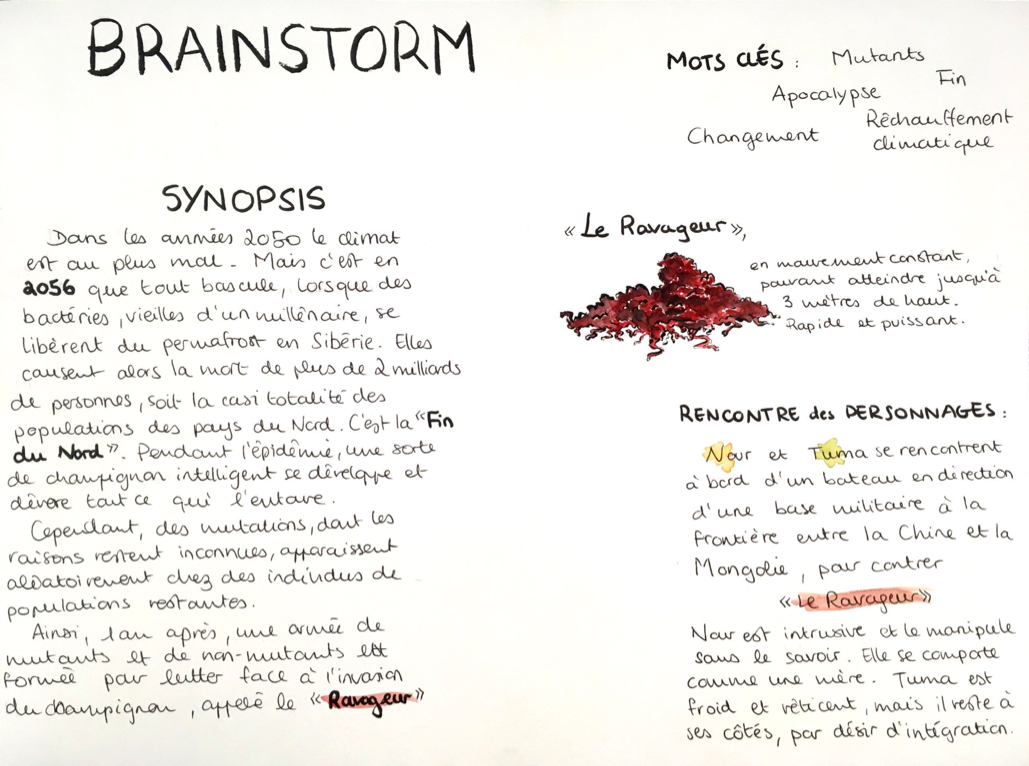 BRAINSTORM
SYNOPSIS
Dans les années 2050 le climat
est au plus mal. Mais c'est en
2056 que tout bascule, lorsque des
bactéries, vieilles d'un millénaire, se
libèrent du permafrost en Sibérie. Elles
causent alors la mort de plus de 2 milliards
de personnes, soit la casi totalité des
populations des pays du Nord. C'est la "Fin
du Nord". Pendant l'épidémie, une sorte
de champignon intelligent se développe et
dévore tout ce qui l'entoure.
Cependant, des mutations, dont les
raisons restent inconnues, apparaissent
aléatoirement chez des individus de
populations restantes.
Ainsi, 1 an après, une armée de
mutants et de non-mutants est
formée pour lutter face à l'invasion
du champignon, appelé le "Ravageur"
MOTS CLÉS : Mutants
Fin
Apocalypse
Réchauffement
climatique
Changement
« Le Ravageur »,
en mouvement constant,
pouvant atteindre jusqu'à
3 mètres de haut.
Rapide et puissant.
RENCONTRE des PERSONNAGES :
Nour et Tuma se rencontrent
à bord d'un bateau en direction
d'une base militaire à la
frontière entre la Chine et la
Mongolie, pour contrer
« Le Ravageur »
Nour est intrusive et le manipule
sans le savoir. Elle se comporte
comme une mère. Tuma est
froid et réticent, mais il reste à
ses côtés, par désir d'intégration.